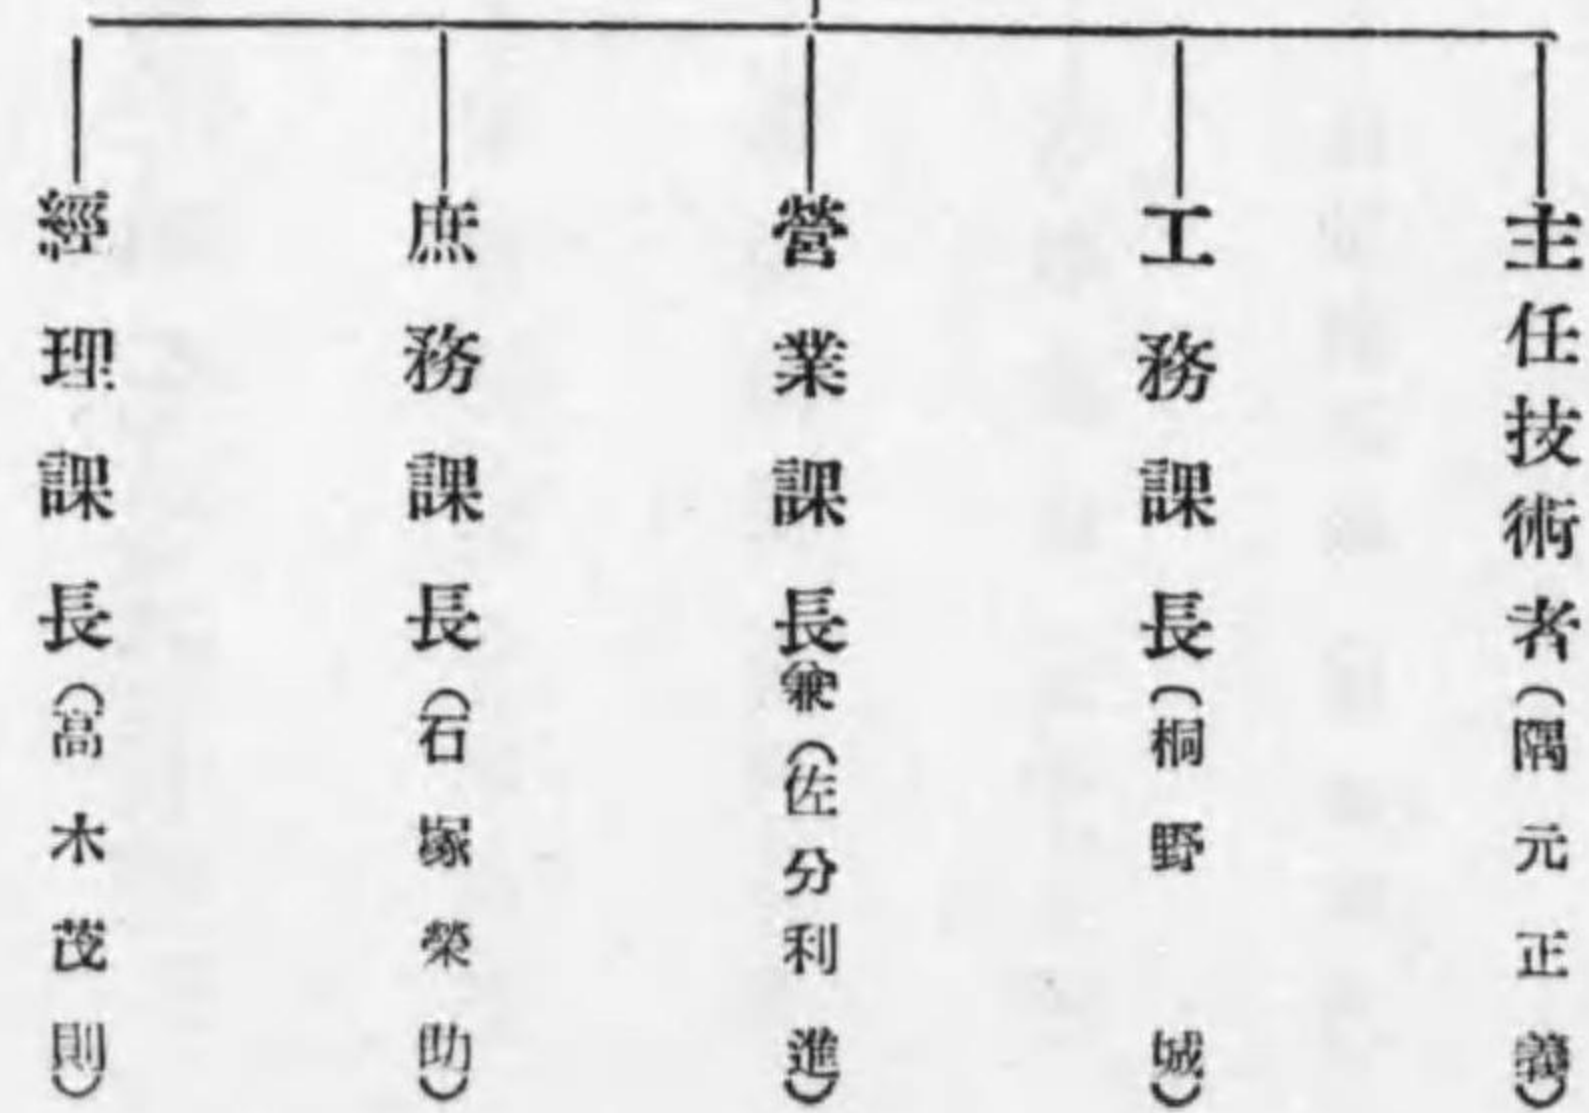 主任技術者（隅元正義）
工務課長（桐野城）
營業課長（兼）（佐分利進）
庶務課長（石塚榮助）
經理課長（高木茂則）